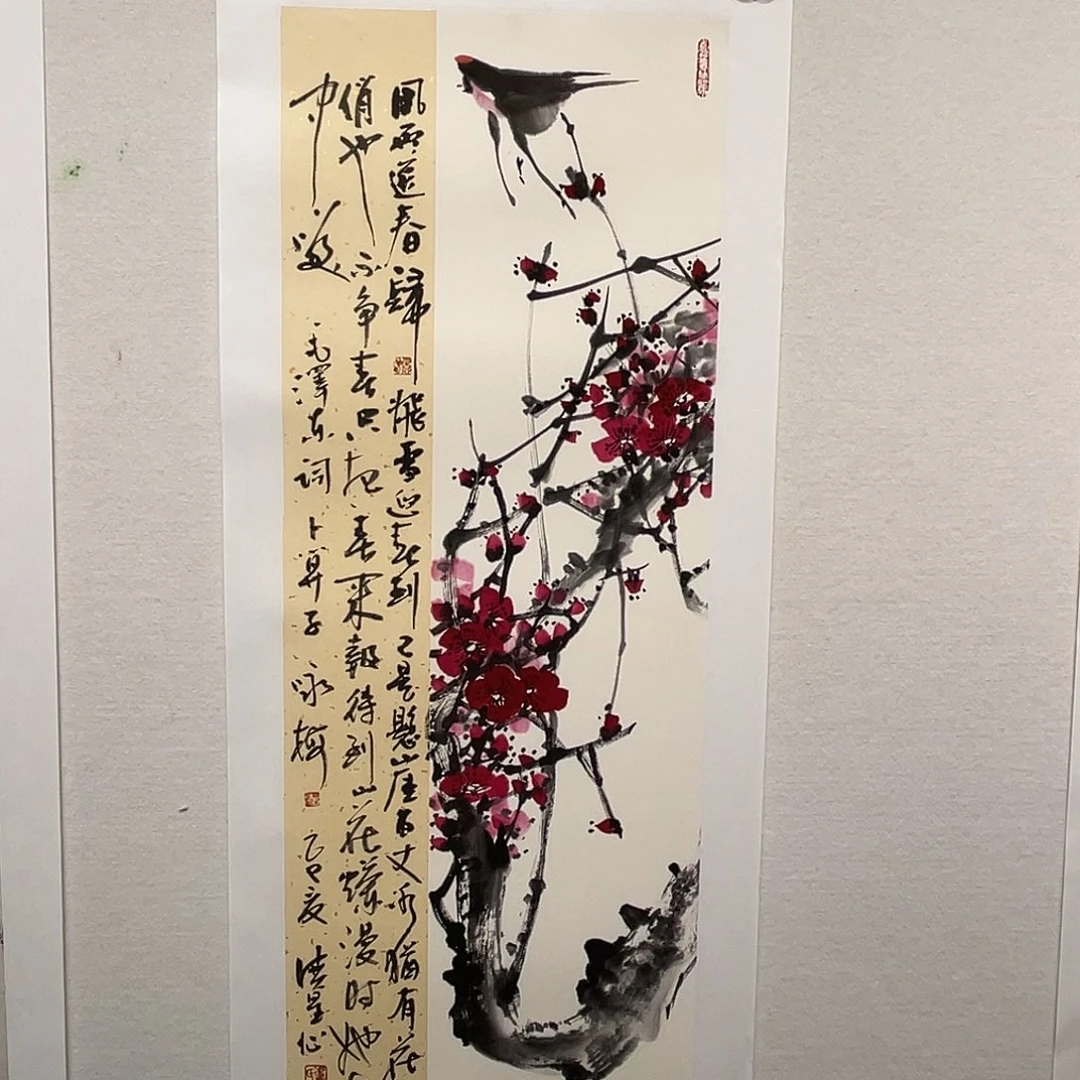 風雨送春歸 飛雪迎春到 已是懸崖百丈冰 猶有花
俏也不爭春只把春來報待到山花爛漫時她
中笑 毛澤东詞 卜算子 咏梅